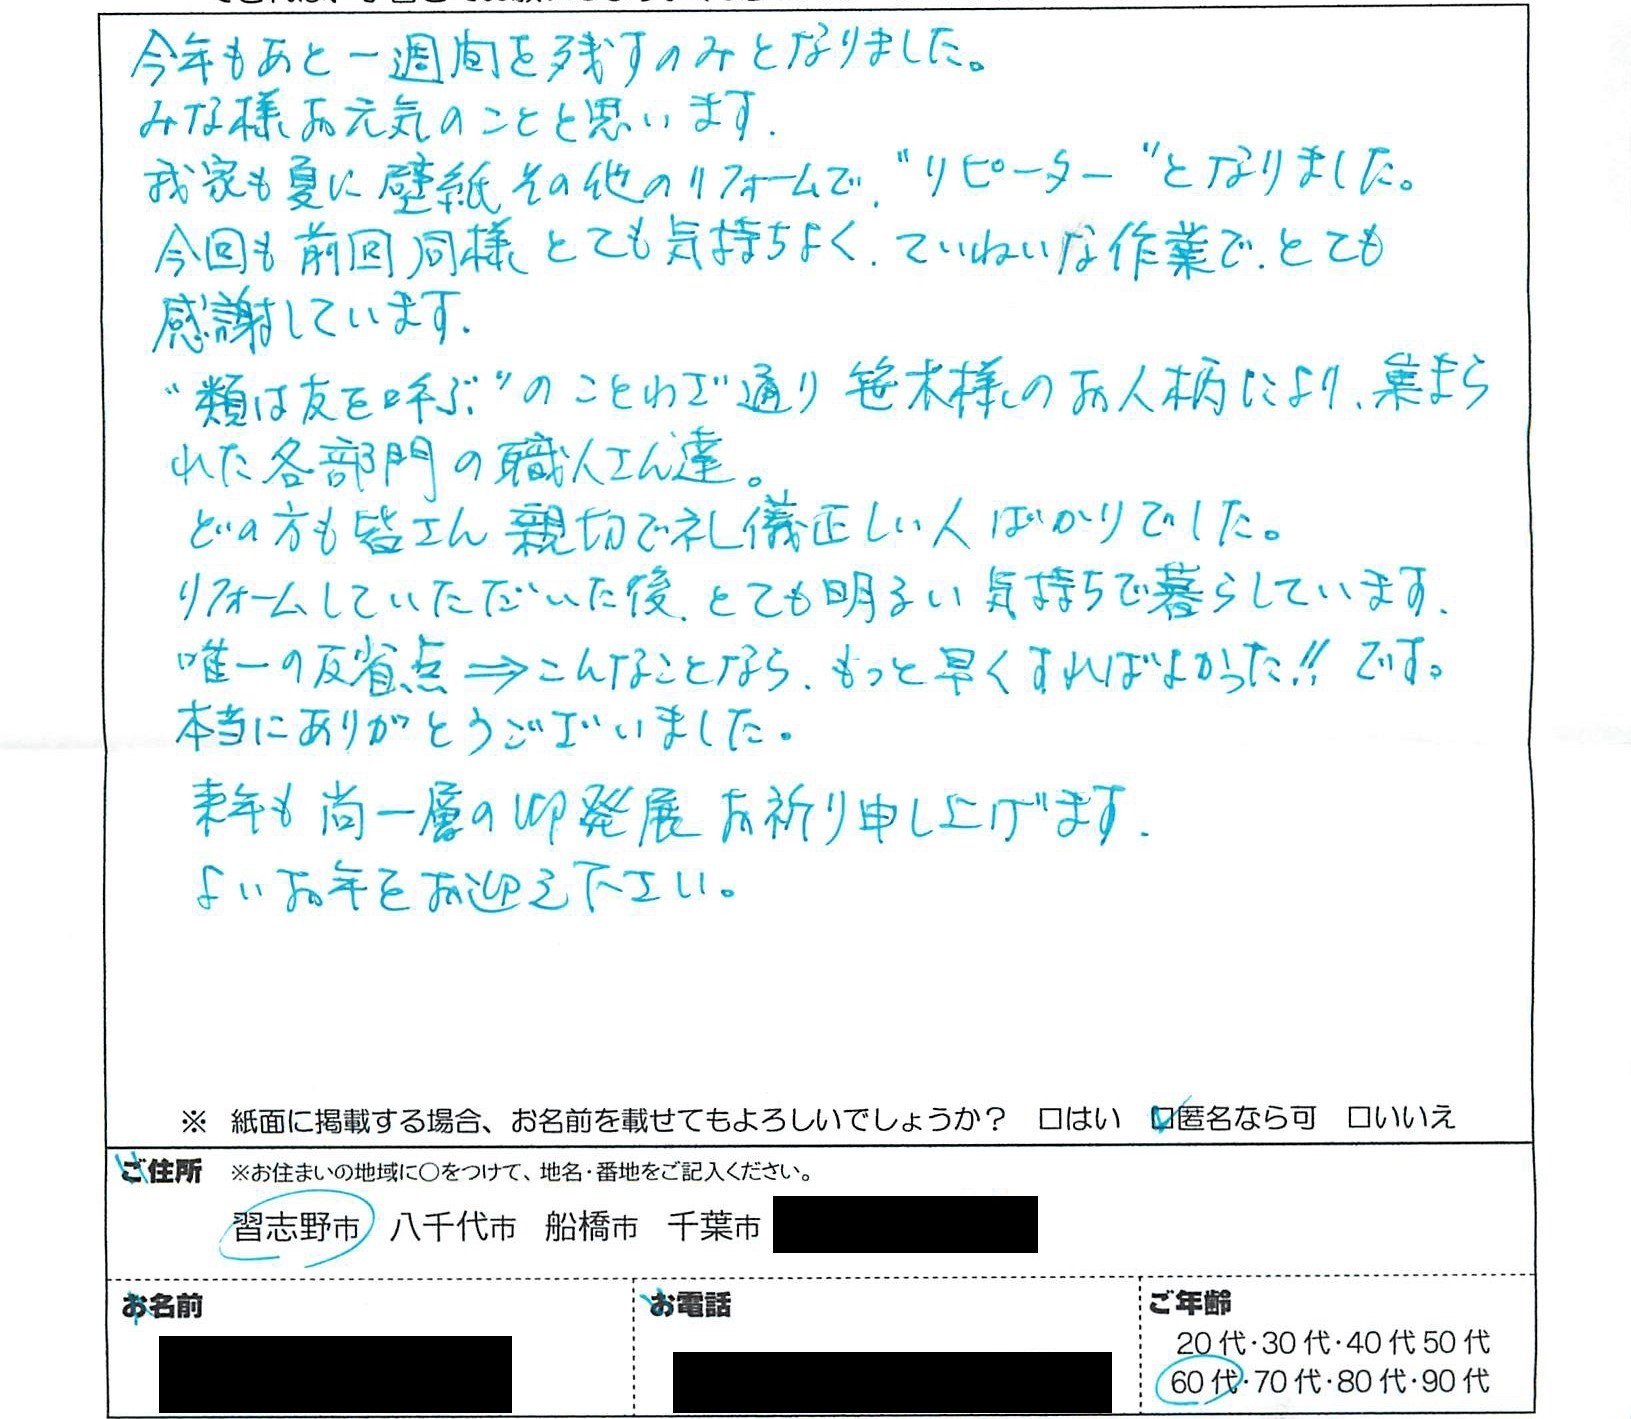 今年もあと一週間を残すのみとなりました。
みな様お元気のことと思います.
我家も夏に壁紙その他のリフォームで、"リピーター"となりました。
今回も前回同様とても気持ちよく、ていねいな作業で、とても
感謝しています.
"類は友を呼ぶ"のことわざ通り笹木様のお人柄により、集まら
れた各部門の職人さん達。
どの方も皆さん親切で礼儀正しい人ばかりでした。
リフォームしていただいた後、とても明るい気持ちで暮らしています.
唯一の反省点⇒こんなことなら、もっと早くすればよかった!!です。
本当にありがとうございました。
来年も尚一層の御発展お祈り申し上げます.
よいお年をお迎え下さい。
※ 紙面に掲載する場合、お名前を載せてもよろしいでしょうか? □はい ☑匿名なら可 □いいえ
ご住所 ※お住まいの地域に○をつけて、地名・番地をご記入ください。
習志野市 八千代市 船橋市 千葉市
お名前 お電話 ご年齢
20代・30代・40代50代
60代・70代・80代・90代